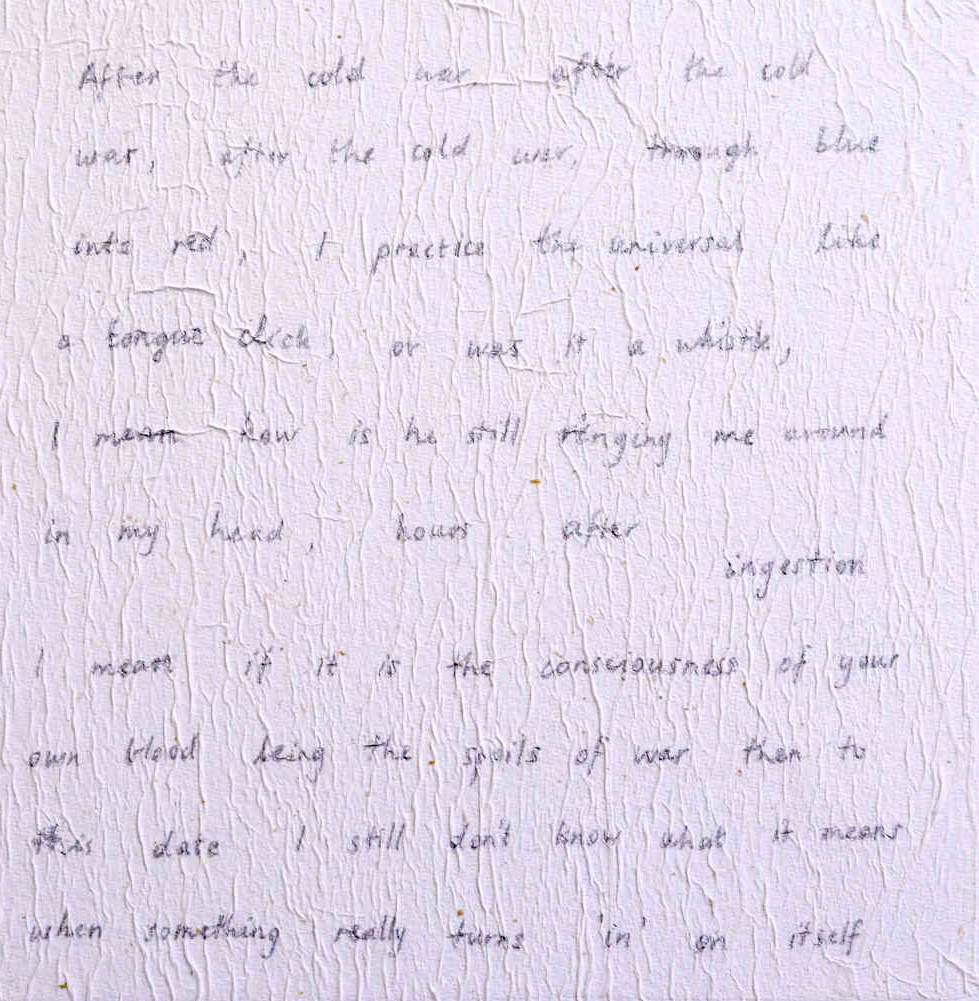 After the cold war after the cold
war, after the cold war, through blue
into red, I practice the universal like
a tongue click, or was it a whistle,
I mean how is he still ringing me around
in my head, hours after
ingestion
I mean if it is the consciousness of your
own blood being the spoils of war then to
this date I still don't know what it means
when something really turns 'in' on itself